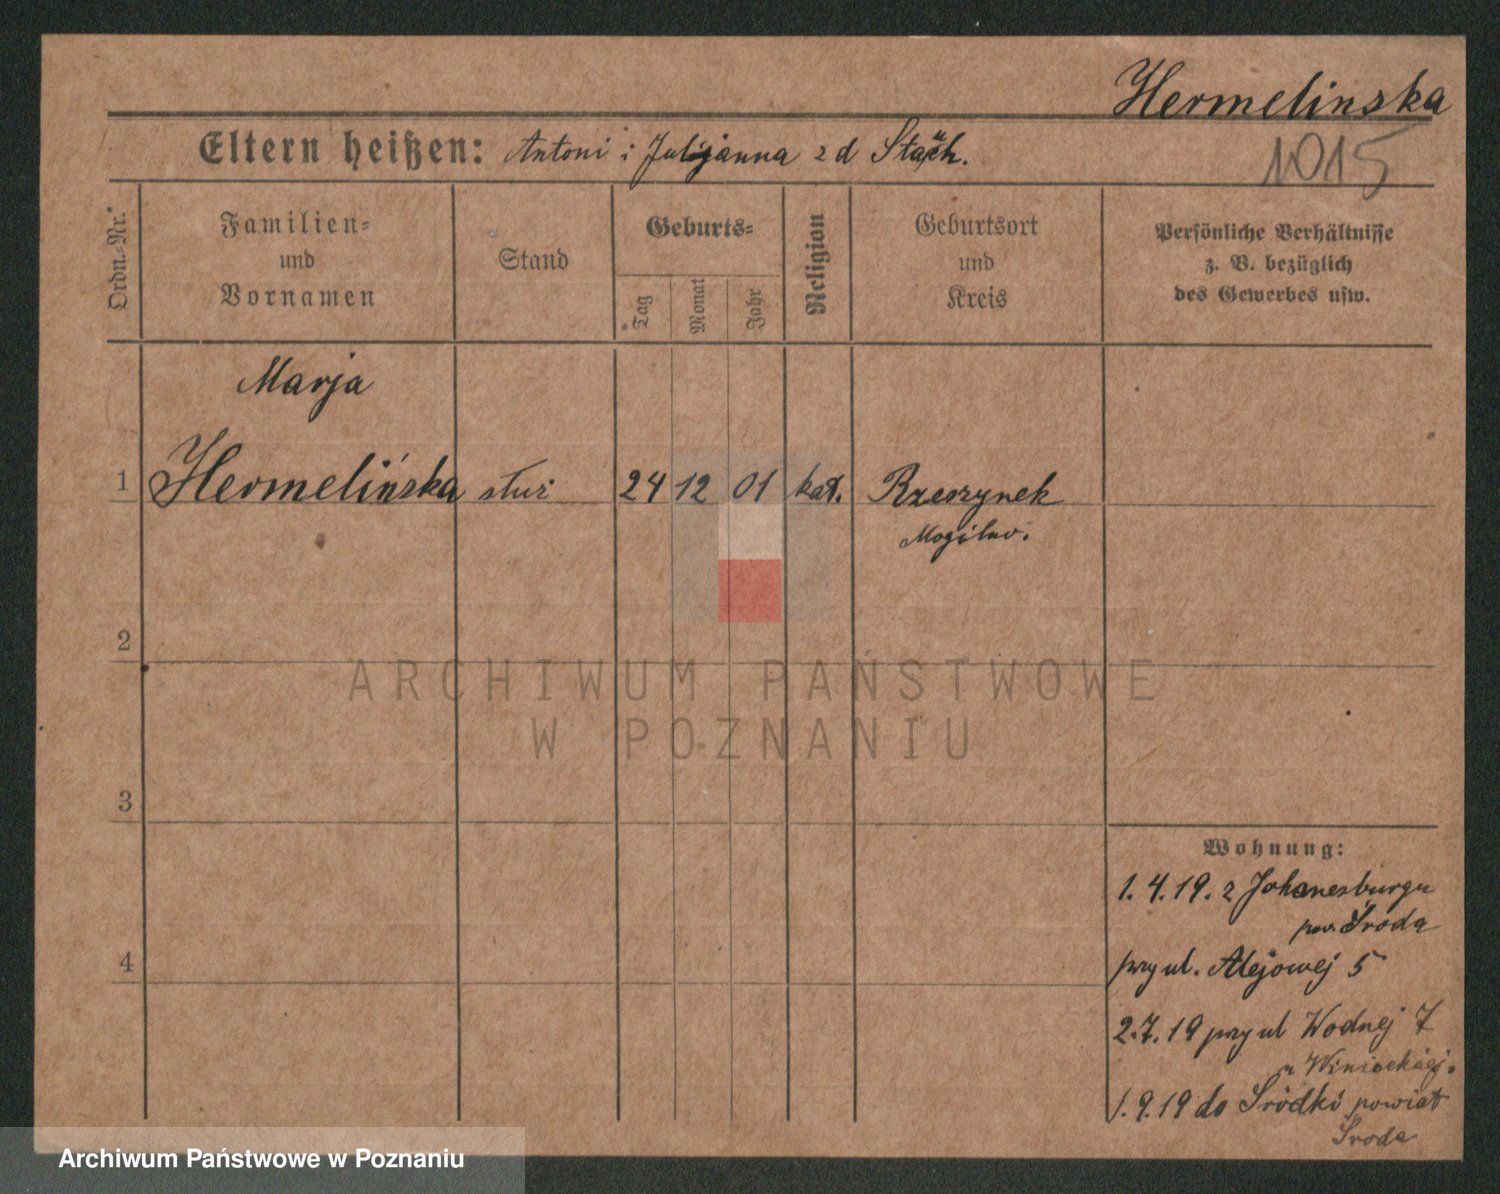 Hermelinska
1015
Eltern heißen: Antoni i Julijanna z d Stach.
Ordn.-Nr.
Familien-
und
Vornamen
Stand
Geburts-
Tag
Monat
Jahr
Religion
Geburtsort
und
Kreis
Persönliche Verhältnisse
z. B. bezüglich
des Gewerbes usw.
Marja
1 Hermelińska służ 24 12 01 kat. Rzeszynek
Mogilno.
2
ARCHIWUM PAŃSTWOWE
W POZNANIU
3
Wohnung:
1.4.19. z Johanesburgu
pow. Środa
4
przy ul. Alejowej 5
2.7.19 przy ul Wodnej 7
u Winieckiej.
1.9.19 do Śródki powiat
Środa
Archiwum Państwowe w Poznaniu